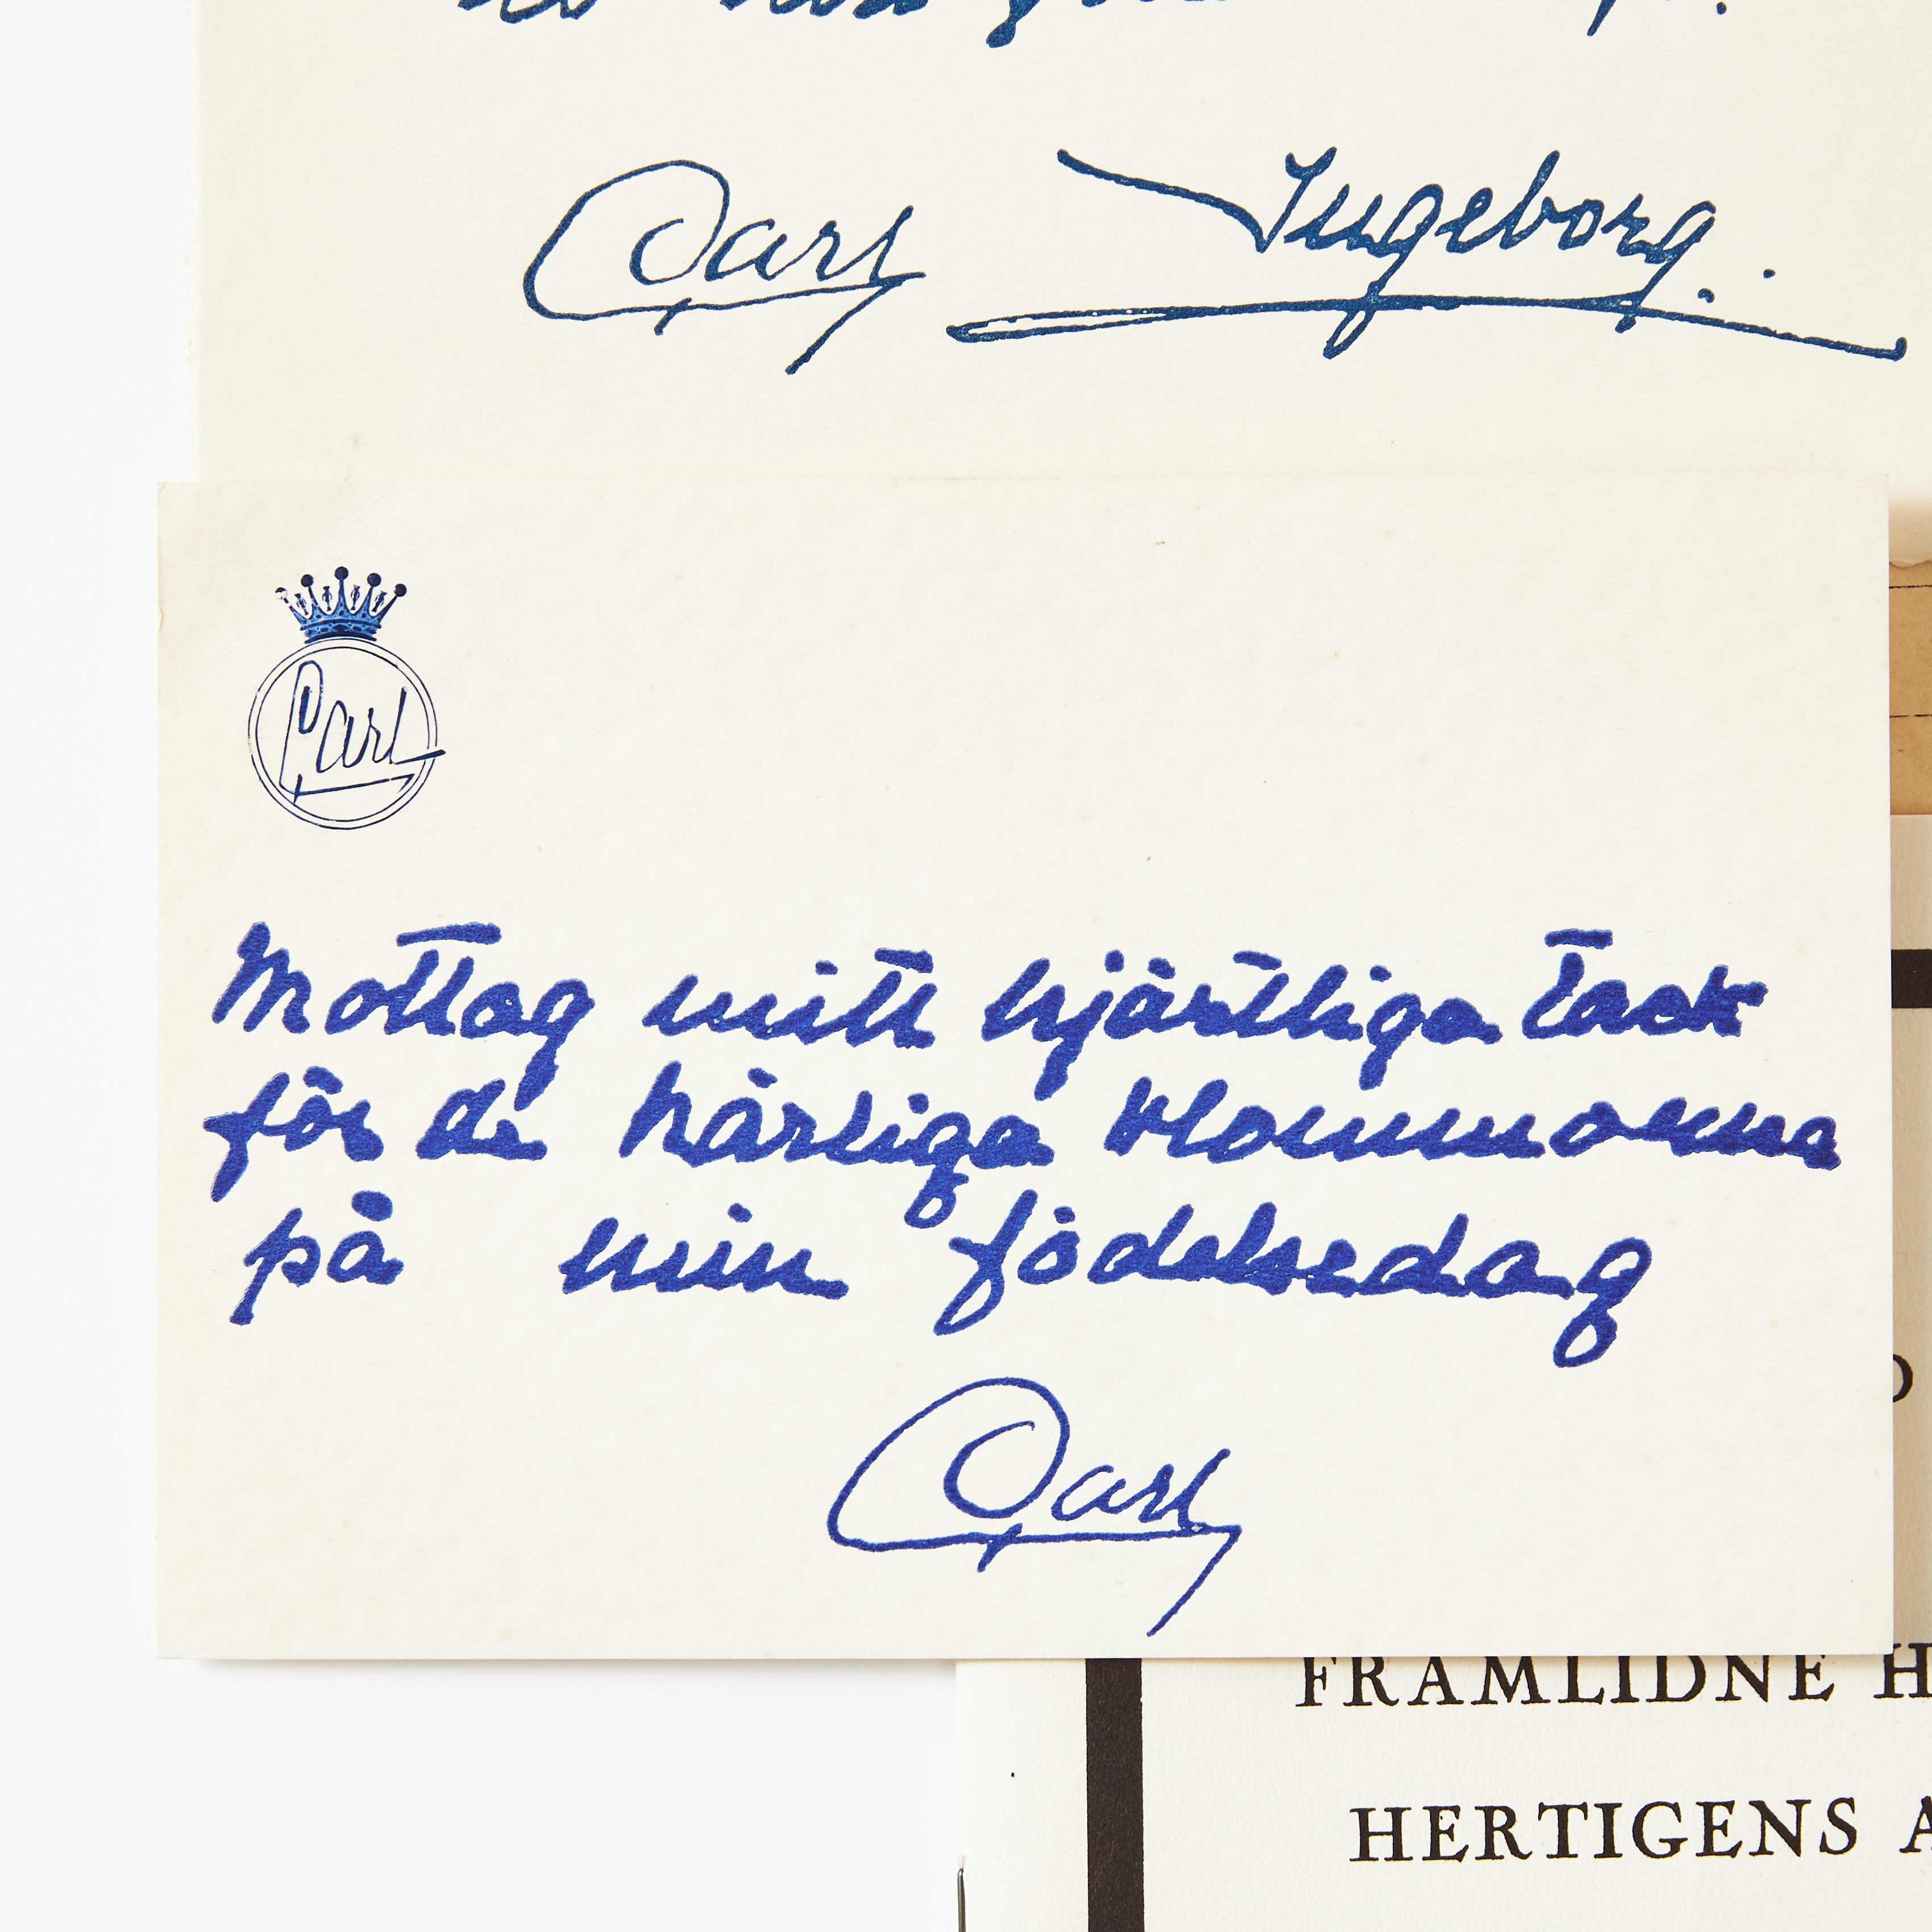 Carl Ingeborg.
Carl
Mottag mitt hjärtliga Tack
för de härliga blommorna
på min födelsedag
Carl
FRAMLIDNE H
HERTIGENS A